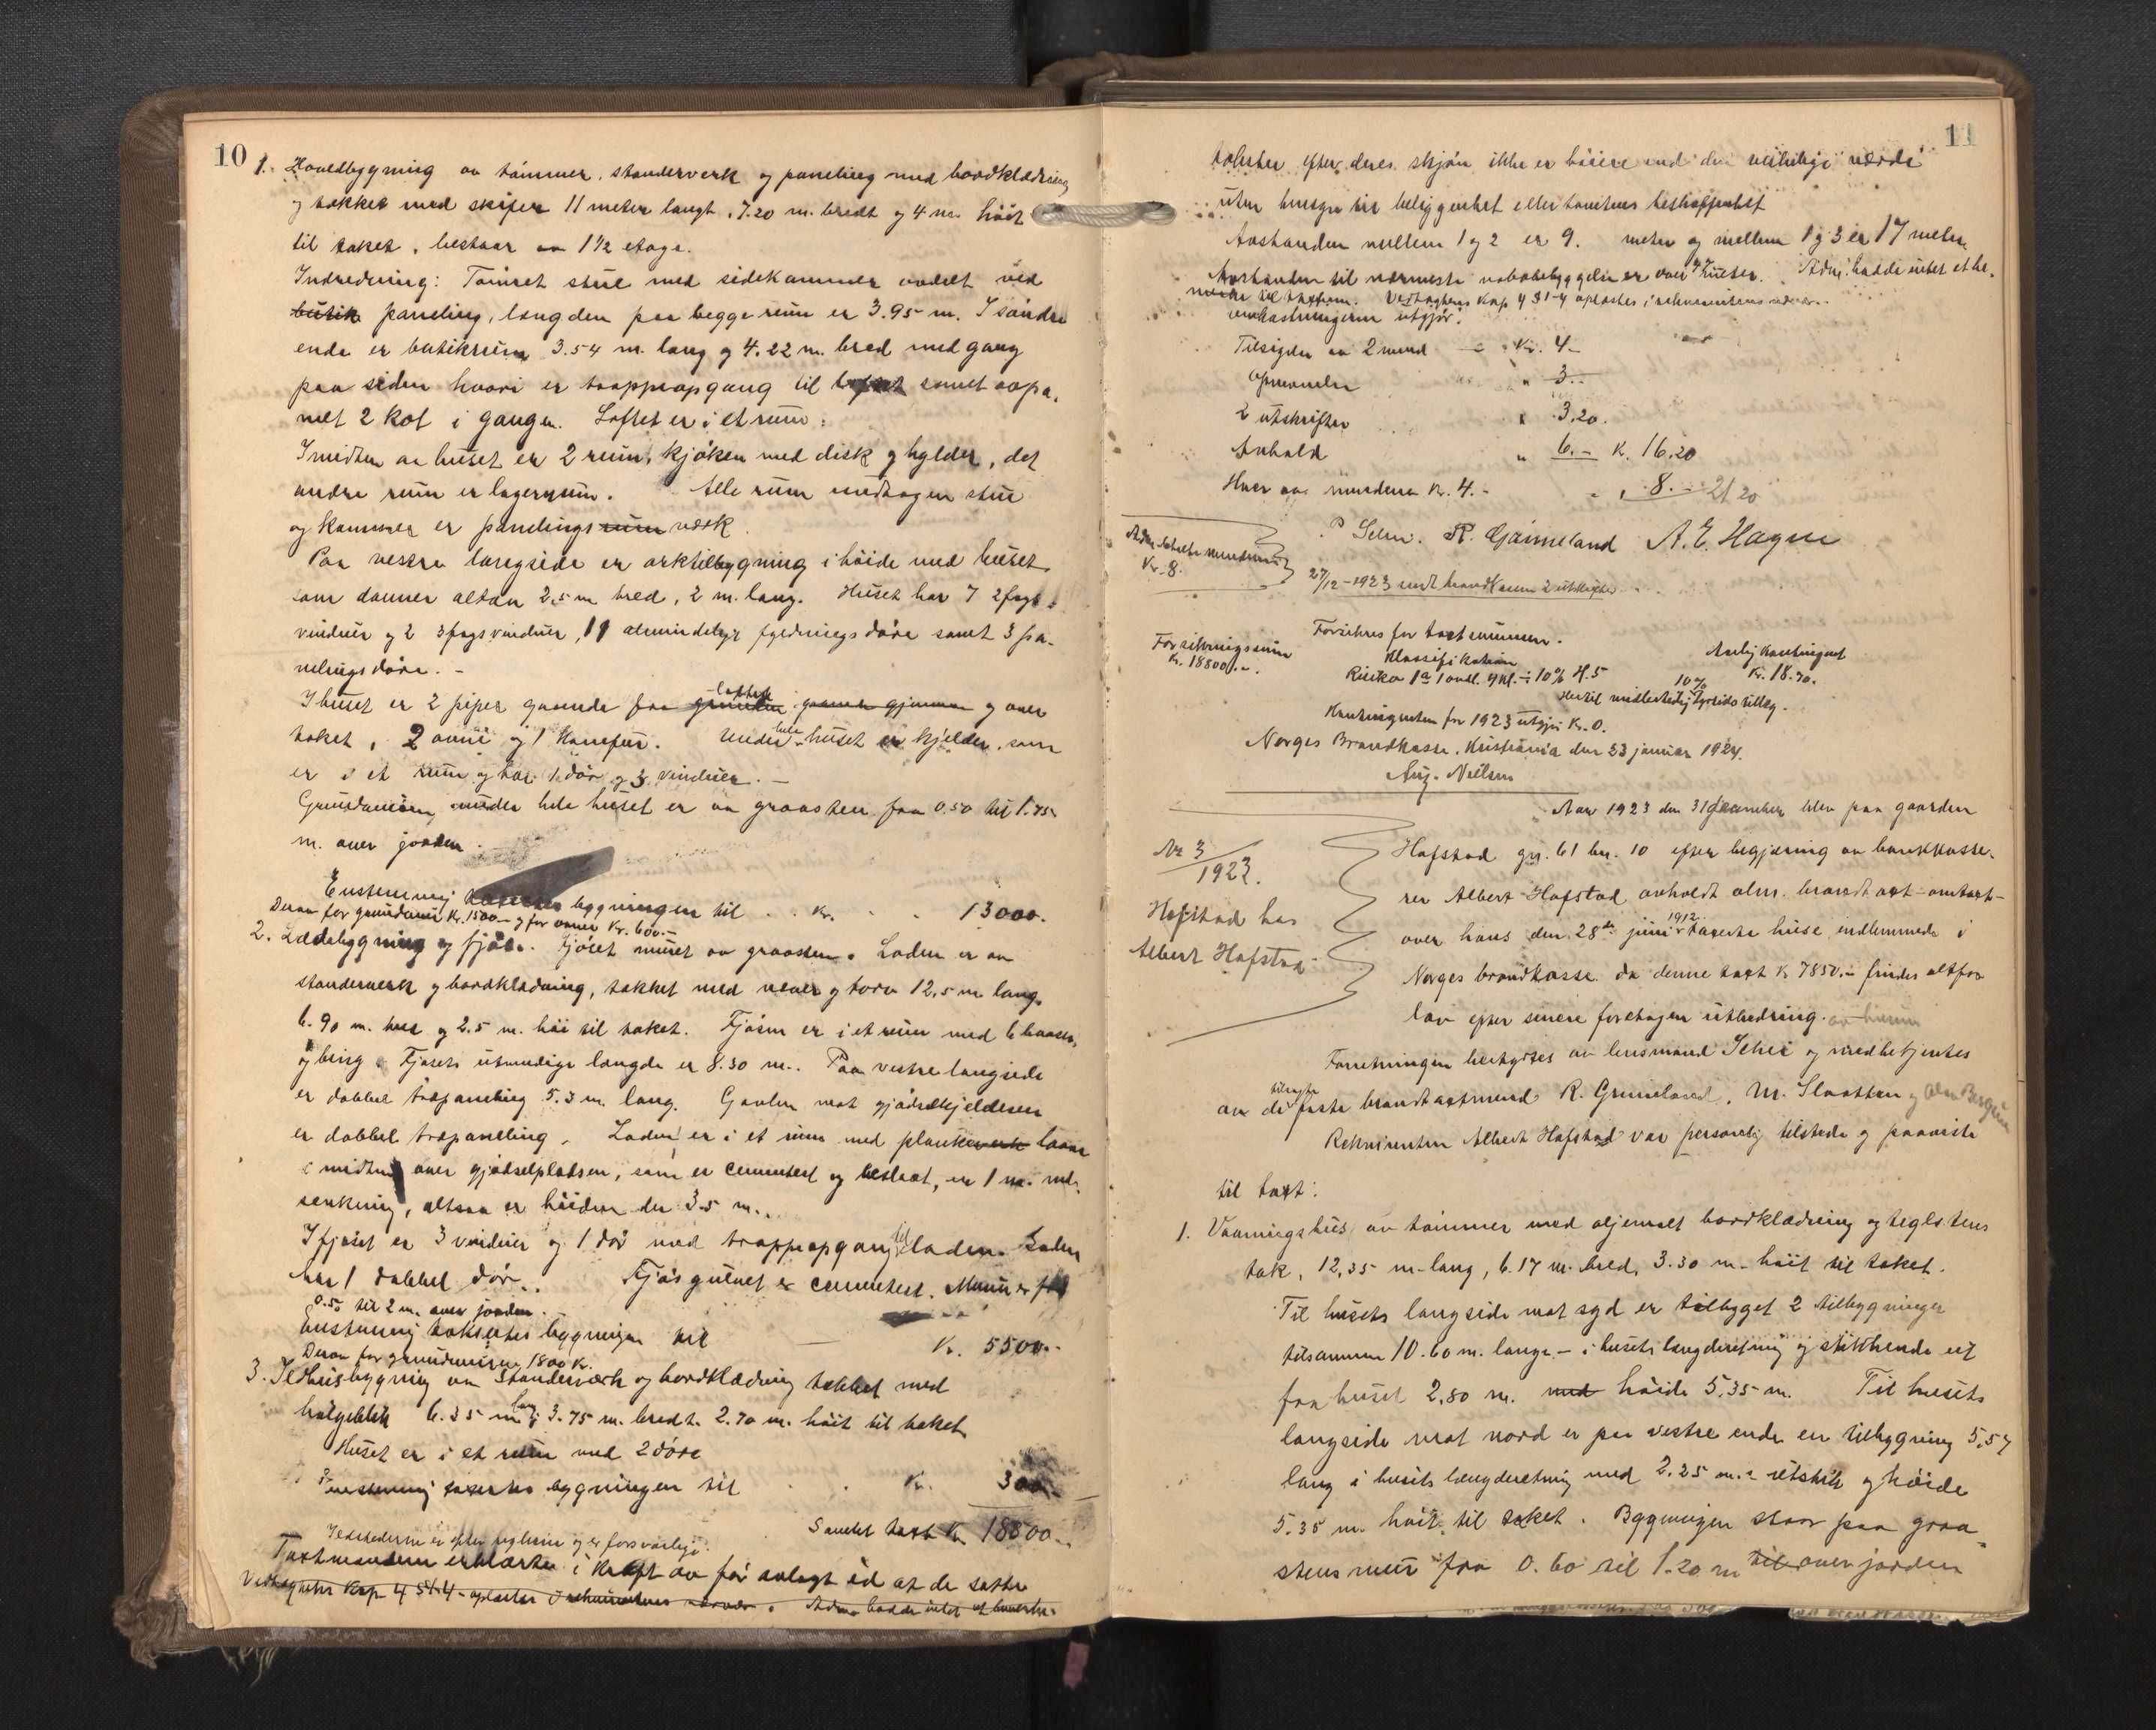 10
1. Hovedbygning av tømmer, standerverk og paneling med bordklædning
og tækket med skifer 11 meter langt, 7.20 m. bredt og 4 m. høit
til taket, bestaar av 1½ etage.
Indredning: Tømret stue med sidekammer avdelt ved
butik paneling, længden paa begge rum er 3.95 m. I søndre
ende er butikrum 3.54 m. lang og 4.22 m. bred med gang
paa siden hvori er trappeopgang til loftet samt avpa-
nelt 2 kot i gangen. Loftet er i et rum.
I midten av huset er 2 rum, kjøken med disk og hylder, det
andre rum er lagerrum. Alle rum undtagen stue
og kammer er panelings rum verk.
Paa vestre langside er arktilbygning i høide med huset
som danner altan 2,5 m bred, 2 m. lang. Huset har 7 2fags
vinduer og 2 3fagsvinduer, 11 almindelige fyldningsdøre samt 3 pa-
nelingsdøre. -
I huset er 2 piper gaaende fra grunden loftet gjennem og over
taket, 2 ovne og 1 komfur. Under hele huset er kjelder, som
er i et rum og har 1 dør og 3 vinduer. -
Grundmuren under hele huset er av graasten fra 0.50 til 1.75
m. over jorden.
Enstemmig takseres bygningen til Kr. 13000.-
Derav for grundmur Kr. 1500 - og for ovner Kr. 600.-
2. Ladebygning og fjøs. Fjøset muret av graasten. Laden er av
standerverk og bordklædning, tækket med never og torv 12,5 m lang,
6.90 m. bred og 2.5 m. høi til taket. Fjøset er i et rum med 6 baaser
og bing. Fjøsets utvendige længde er 8.30 m. Paa vestre langside
er dobbel træpaneling 5.3 m. lang. Gavlen mot gjødselkjelderen
er dobbel træpaneling. Laden er i et rum med plankeverk laave
i midten over gjødselpladsen, som er cementert og
senkning, altsaa er høiden der 3.5 m.
I fjøset er 3 vinduer og 1 dør med trappeopgang til laden. Laden
har 1 dobbel dør. Fjøsgulvet er cementert. Muren er fra
0.50 til 2 m. over jorden.
Enstemmig taksertes bygningen til Kr. 5500.-
Derav for grundmuren 1800 Kr.
3. Ildhusbygning av standerverk og bordklædning tækket med
bølgeblik 6.35 m lang 3.75 m. bredt 2.70 m. høit til taket
Huset er i et rum med 2 døre
Enstemmig takseres bygningen til Kr. 300.-
Samlet takst Kr. 18800.-
Ildstederne er efter reglerne og er forsvarlige.
Takstmændene erklærte i kraft av før avlagt ed at de satte
Vedtægtens Kap 4 § 1-4 oplæstes i rekvirentens nærvær. Adm. hadde intet at bemerke.
11
takster efter deres skjøn ikke er høiere end den virkelige værdi
uten hensyn til beliggenhet eller tomtens beskaffenhet
Avstanden mellem 1 og 2 er 9. meter og mellem 1 og 3 er 17 meter.
Avstanden til nærmeste nabobebyggelse er over meter. Adm. hadde intet at be-
merke til taksten. Vedtægtens Kap 4 § 1-4 oplæstes i rekvirentens nærvær.
Omkostningerne utgjør:
Tilsigelse av 2 mænd Kr. 4.-
Opnævnelse " 3.-
2 utskrifter " 3.20.
Avhold " 6.- K. 16.20
Hver av mændene Kr. 4.- " 8.- 21 20
R. Gåmeland A. E. Hagen
Adm. betalte mændene
Kr. 8.
27/12-1923 sendt brandkassen 2 utskrifter
Forsikringssum
Kr. 18800.-.
Forsikres for takstsummen.
Klassifikation
Risiko 1a 1 avdl. 4 kl. ÷ 10% H. 5
Aarlig kontingent
Kr. 18.70.
10%
Hertil midlertidig dyrtidstillæg.
Kontingenten for 1923 utgjør Kr. 0.
Norges Brandkasse, Kristiania den 23 januar 1924.
Aug. Nielsen
Nr 3
1923.
Hofstad hos
Albert Hofstad
Aar 1923 den 31 december blev paa gaarden
Hofstad gn. 61 bn. 10 efter begjæring av bankkasse-
rer Albert Hofstad avholdt alm. brandtakst - omtakst -
over hans den 28de juni 1912 takserte huse, indlemmede i
Norges brandkasse da denne takst Kr 7850.- findes altfor
lav efter senere foretagen utbedring. av ham
Forretningen bestyrtes av lensmand Schei og medbetjentes
av de tilkaldte faste brandtakstmænd R. Grimeland, M. Slaatten og
Rekvirenten Albert Hofstad var personlig tilstede og paaviste
til takst:
1. Vaaningshus av tømmer med oljemalt bordklædning og teglstens
tak, 12,35 m. lang, 6.17 m. bred, 3.30 m. høit til taket.
Til husets langside mot syd er tilbygget 2 tilbygninger
tilsammen 10.60 m. lange - i husets længderetning og stikkende ut
fra huset 2,80 m. med høide 5,35 m. Til husets
langside mot nord er paa vestre ende en tilbygning 5,57
lang i husets længderetning med 2.25 m.s utstik og høide
5.35 m. høit til taket. Bygningen staar paa graa-
stens mur fra 0.60 til 1.20 m til over jorden